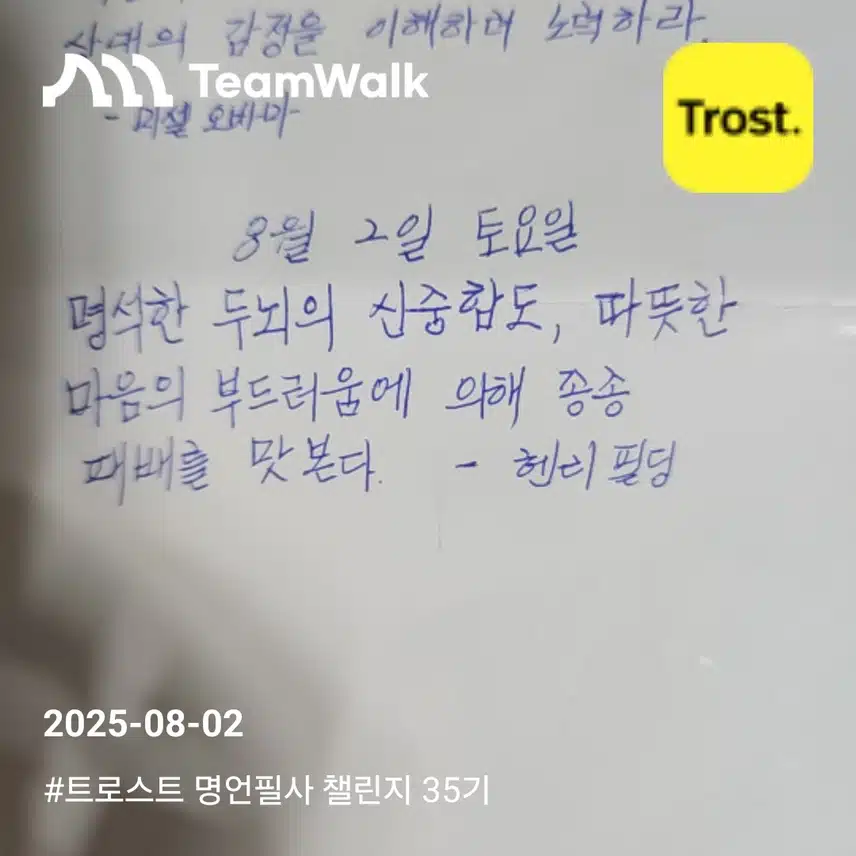 상대의 감정을 이해하며 노력하라.
TeamWalk
Trost.
- 미셸 오바마
8월 2일 토요일
명석한 두뇌의 신중함도, 따뜻한
마음의 부드러움에 의해 종종
패배를 맛본다. - 헨리 필딩
2025-08-02
#트로스트 명언필사 챌린지 35기